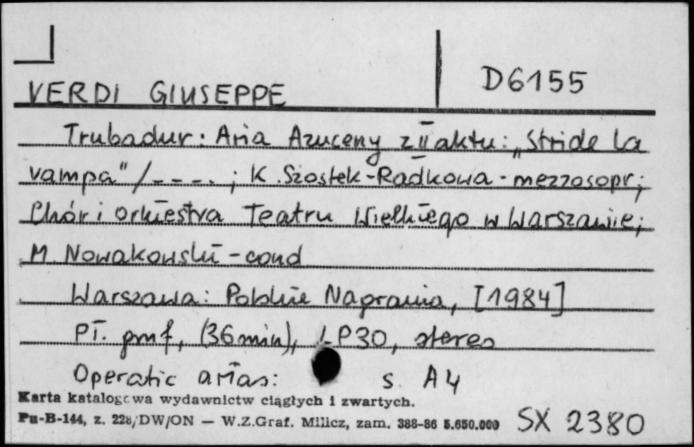 VERDI GIUSEPPE
D6155
Trubadur: Aria Azuceny z II aktu: „Stride la
vampa" / - - - . ; K. Szostek-Radkowa - mezzosopr;
Chór i orkiestra Teatru Wielkiego w Warszawie;
M Nowakowski - cond
Warszawa: Polskie Nagrania, [1984]
Pł. gmf, (36 min), LP30, stereo
Operatic arias: s. A4
Karta katalogowa wydawnictw ciągłych i zwartych.
Pu-B-144, z. 228/DW/ON — W.Z.Graf. Milicz, zam. 388-86 5.650.000
SX 2380